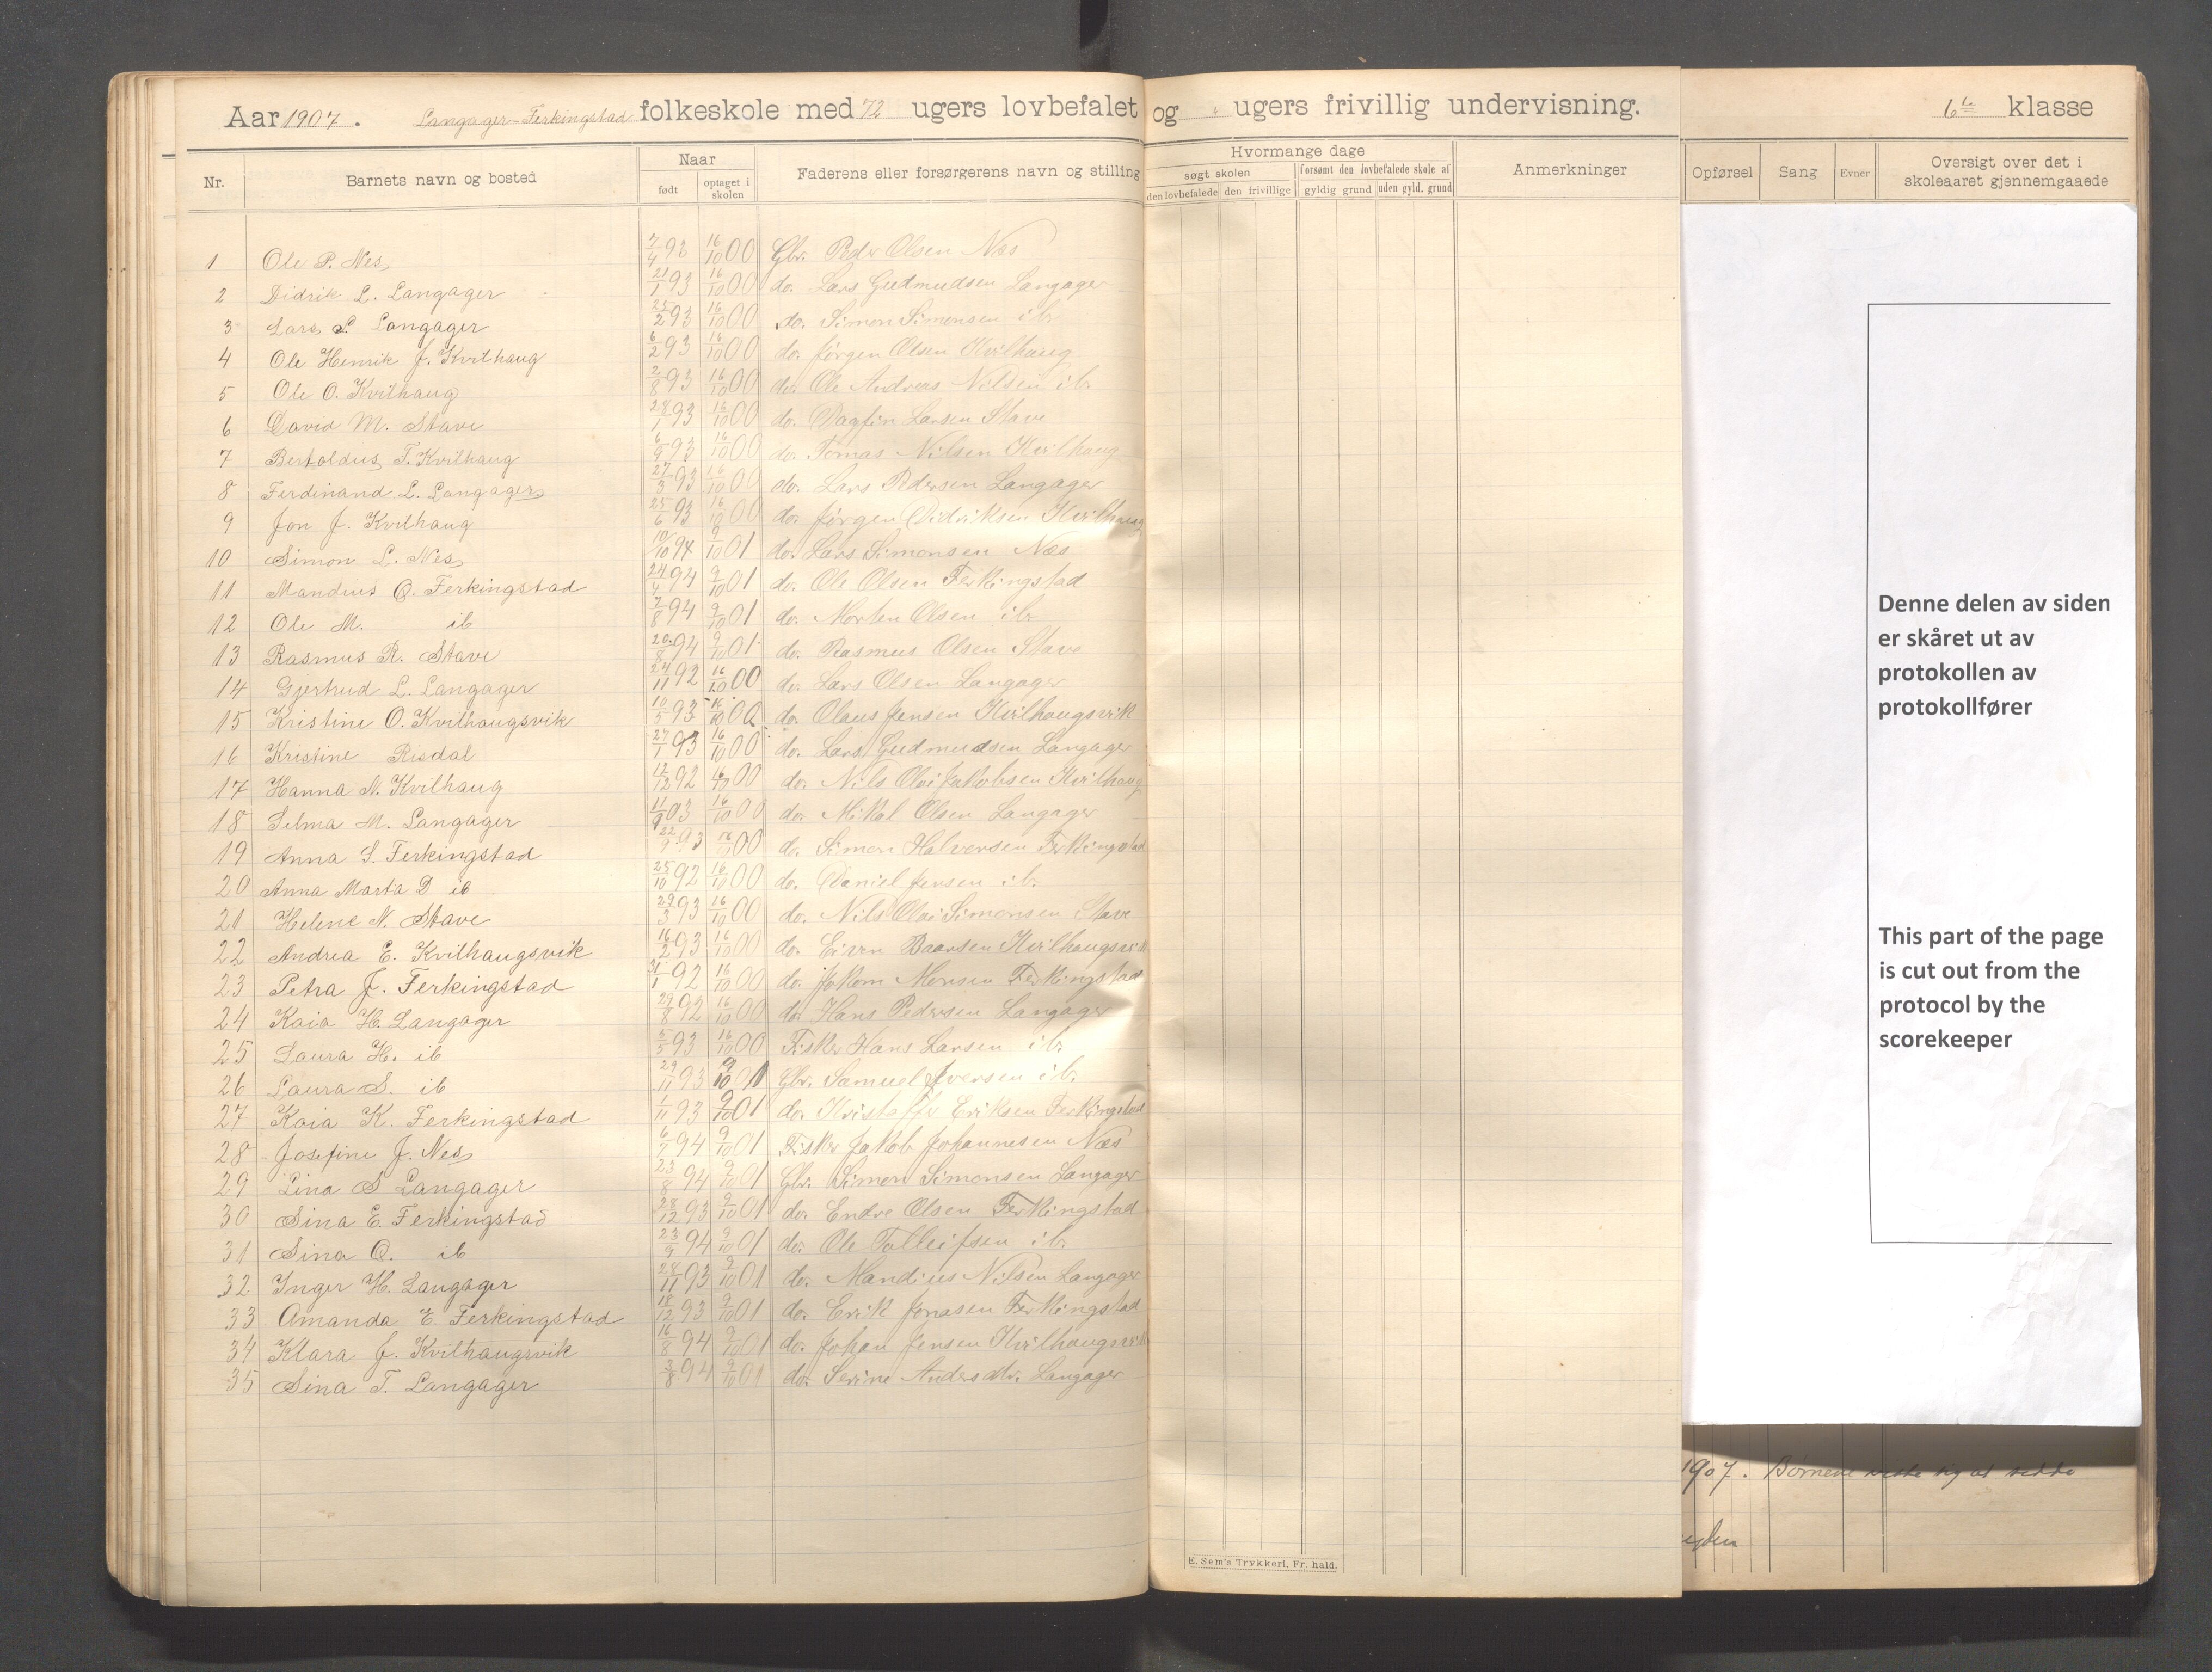 Aar 1907. Langager-Ferkingstad folkeskole med 72 ugers lovbefalet og ugers frivillig undervisning. 6te klasse
Nr. Barnets navn og bosted Naar født optaget i skolen Faderens eller forsørgerens navn og stilling Hvormange dage søgt skolen den lovbefalede den frivillige forsømt den lovbefalede skole af gyldig grund uden gyld. grund Anmerkninger Opførsel Sang Evner Oversigt over det i skoleaaret gjennemgaaede
1 Ole P. Nes 7/4 93 16/10 00 Gbr. Peder Olsen Næs
2 Didrik L. Langager 21/1 93 16/10 00 do. Lars Gudmudsen Langager
3 Lars S. Langager 25/2 93 16/10 00 do. Simon Simonsen ib.
4 Ole Henrik J. Kvilhaug 6/2 93 16/10 00 do. Jørgen Olsen Kvilhaug
5 Ole O. Kvilhaug 2/8 93 16/10 00 do. Ole Andreas Nilsen ib.
6 David M. Stave 28/1 93 16/10 00 do. Dagfin Larsen Stave
7 Bertoldus T. Kvilhaug 6/9 93 16/10 00 do. Tomas Nilsen Kvilhaug
8 Ferdinand L. Langager 27/3 93 16/10 00 do. Lars Pedersen Langager
9 Jon J. Kvilhaug 25/6 93 16/10 00 do. Jørgen Didriksen Kvilhaug
10 Simon L. Nes 10/10 94 9/10 01 do. Lars Simonsen Næs
11 Mandius O. Ferkingstad 24/4 94 9/10 01 do. Ole Olsen Ferkingstad
12 Ole M. ib 7/8 94 9/10 01 do. Morten Olsen ib.
13 Rasmus R. Stave 20/8 94 9/10 01 do. Rasmus Olsen Stave
14 Gjertrud L. Langager 24/11 92 16/10 00 do. Lars Olsen Langager
15 Kristine O. Kvilhaugsvik 10/5 93 16/10 00 do. Olaus Jensen Kvilhaugsvik
16 Kristine Risdal 27/1 93 16/10 00 do. Lars Gudmudsen Langager
17 Hanna N. Kvilhaug 12/12 92 16/10 00 do. Nils Olai Jakobsen Kvilhaug
18 Selma M. Langager 11/9 03 16/10 00 do. Mikal Olsen Langager
19 Anna S. Ferkingstad 22/9 93 16/10 00 do. Simon Halvorsen Ferkingstad
20 Anna Marta D ib 25/10 92 16/10 00 do. Daniel Jensen ib.
21 Helene N. Stave 29/3 93 16/10 00 do. Nils Olai Simonsen Stave
22 Andrea E. Kvilhaugsvik 16/2 93 16/10 00 do. Eivin Baarsen Kvilhaugsvik
23 Petra J. Ferkingstad 31/1 92 16/10 00 do. Jakom Monsen Ferkingstad
24 Kaia H. Langager 29/8 92 16/10 00 do. Hans Pedersen Langager
25 Laura H. ib 5/5 93 16/10 00 Fisker Hans Larsen ib.
26 Laura S. ib 29/11 93 9/10 01 Gbr. Samuel Iversen ib.
27 Kaia K. Ferkingstad 1/11 93 9/10 01 do. Kristoffer Eriksen Ferkingstad
28 Josefine J. Nes 6/7 94 9/10 01 Fisker Jakob Johannesen Næs
29 Lina S Langager 23/8 94 9/10 01 Gbr. Simon Simonsen Langager
30 Sina E. Ferkingstad 28/12 93 9/10 01 do. Endre Olsen Ferkingstad
31 Sina O. ib 23/9 94 9/10 01 do. Ole Tolleifsen ib.
32 Inger H. Langager 28/11 93 9/10 01 do. Mandius Nilsen Langager
33 Amanda E. Ferkingstad 18/12 93 9/10 01 do. Erik Jonasen Ferkingstad
34 Klara J. Kvilhaugsvik 16/8 94 9/10 01 do. Johan Jensen Kvilhaugsvik
35 Sina T. Langager 3/8 94 9/10 01 do. Serine Andersdtr. Langager
E. Sem's Trykkeri, Fr. hald.
Denne delen av siden
er skåret ut av
protokollen av
protokollfører
This part of the page
is cut out from the
protocol by the
scorekeeper
1907. Børnene viste sig at